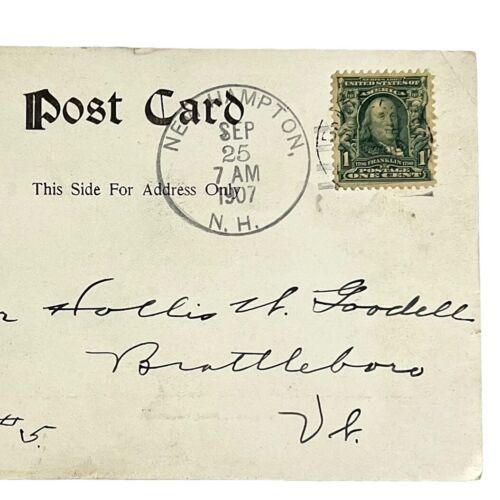 Post Card
NEW HAMPTON,
SEP
25
7 AM
1907
N. H.
SERIES 1902
UNITED STATES OF
AMERICA
1706 FRANKLIN 1790
1 1
POSTAGE
ONE CENT
This Side For Address Only
Hollis W. Goodell
Brattleboro
Vt.
#5.